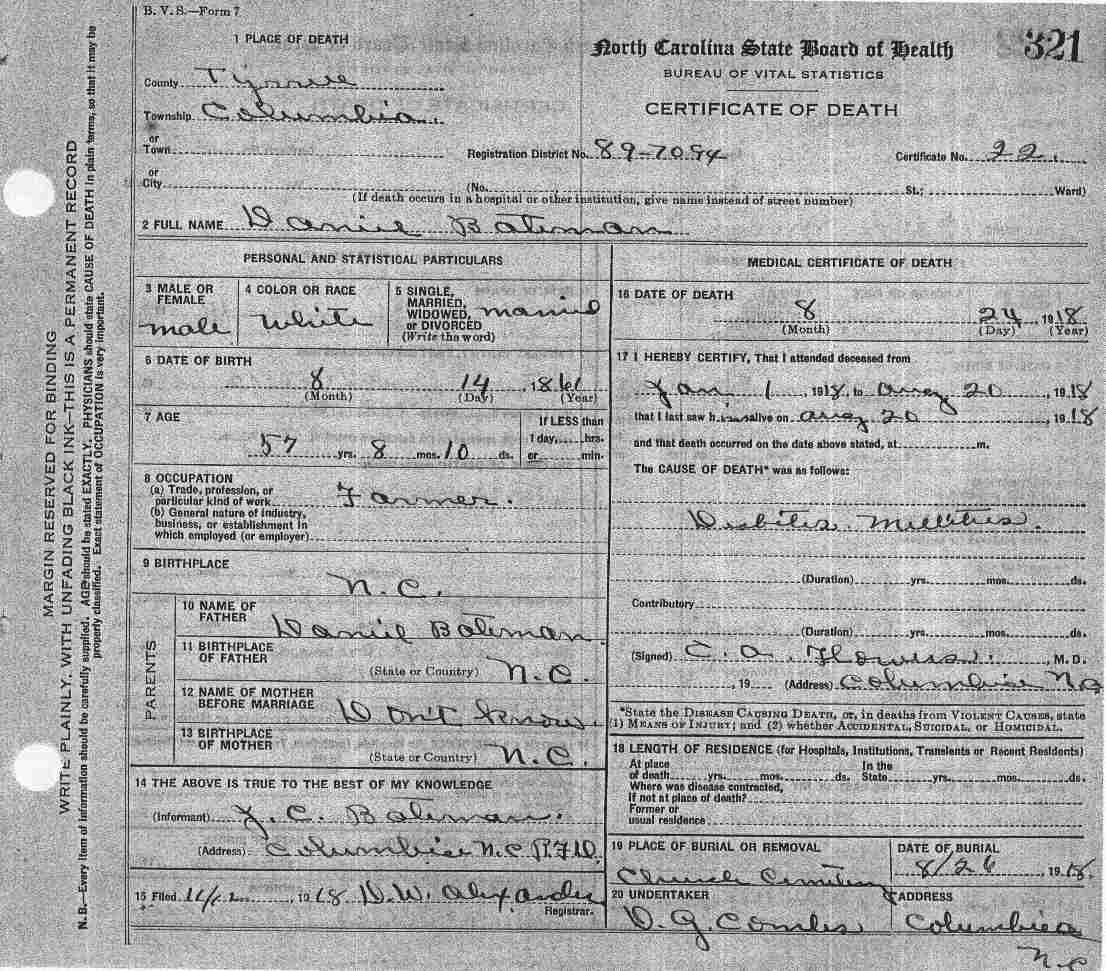 B. V. S.—Form 7
321
North Carolina State Board of Health
BUREAU OF VITAL STATISTICS
CERTIFICATE OF DEATH
1 PLACE OF DEATH
County
Township Columbia.
or
Town
Registration District No. 89-7094
Certificate No. 22.
or
City (No. St.; Ward)
(If death occurs in a hospital or other institution, give name instead of street number)
2 FULL NAME Daniel Bateman
PERSONAL AND STATISTICAL PARTICULARS
3 MALE OR FEMALE
male
4 COLOR OR RACE
White
5 SINGLE, MARRIED, WIDOWED, or DIVORCED
(Write the word)
married
6 DATE OF BIRTH
8 14 1861
(Month) (Day) (Year)
7 AGE
57 yrs. 8 mos. 10 ds.
If LESS than
1 day, hrs.
or min.
8 OCCUPATION
(a) Trade, profession, or
particular kind of work Farmer.
(b) General nature of industry,
business, or establishment in
which employed (or employer)
9 BIRTHPLACE
N.C.
PARENTS
10 NAME OF FATHER
Daniel Bateman.
11 BIRTHPLACE OF FATHER
(State or Country) N.C.
12 NAME OF MOTHER BEFORE MARRIAGE
Don't know.
13 BIRTHPLACE OF MOTHER
(State or Country) N.C.
14 THE ABOVE IS TRUE TO THE BEST OF MY KNOWLEDGE
(Informant) J. C. Bateman.
(Address) Columbia N.C. R.F.D.
15 Filed 1918 D. W. Alexander
Registrar.
MEDICAL CERTIFICATE OF DEATH
16 DATE OF DEATH
8 24, 1918
(Month) (Day) (Year)
17 I HEREBY CERTIFY, That I attended deceased from
Jan 1 1918, to Aug 20, 1918
that I last saw him alive on Aug 20, 1918
and that death occurred on the date above stated, at m.
The CAUSE OF DEATH* was as follows:
(Duration) yrs. mos. ds.
Contributory
(Duration) yrs. mos. ds.
(Signed) C. A. Flowers., M. D.
, 19 (Address) Columbia N.C
*State the DISEASE CAUSING DEATH, or, in deaths from VIOLENT CAUSES, state
(1) MEANS OF INJURY; and (2) whether ACCIDENTAL, SUICIDAL, or HOMICIDAL.
18 LENGTH OF RESIDENCE (for Hospitals, Institutions, Transients or Recent Residents)
At place
of death yrs. mos. ds.
In the
State yrs. mos. ds.
Where was disease contracted,
If not at place of death?
Former or
usual residence
19 PLACE OF BURIAL OR REMOVAL
Church Cemetery
DATE OF BURIAL
8/26, 1918.
20 UNDERTAKER
D. G. Combs
ADDRESS
Columbia
N.C
MARGIN RESERVED FOR BINDING
WRITE PLAINLY, WITH UNFADING BLACK INK—THIS IS A PERMANENT RECORD
N. B.—Every item of information should be carefully supplied. AGE should be stated EXACTLY. PHYSICIANS should state CAUSE OF DEATH in plain terms, so that it may be
properly classified. Exact statement of OCCUPATION is very important.